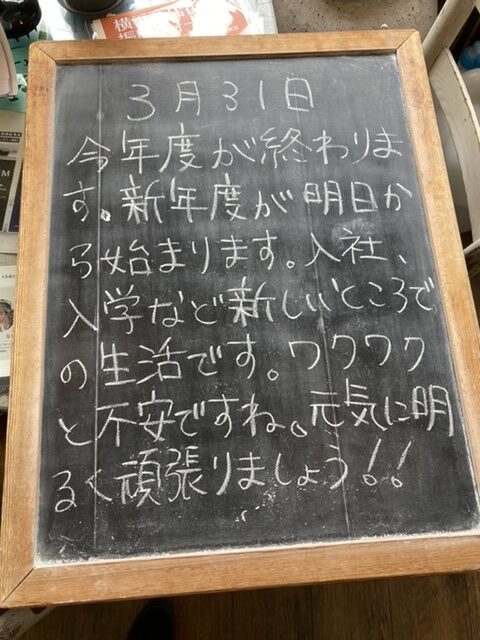 3月31日
今年度が終わりま
す。新年度が明日か
ら始まります。入社、
入学など新しいところで
の生活です。ワクワク
と不安ですね。元気に明
るく頑張りましょう!!